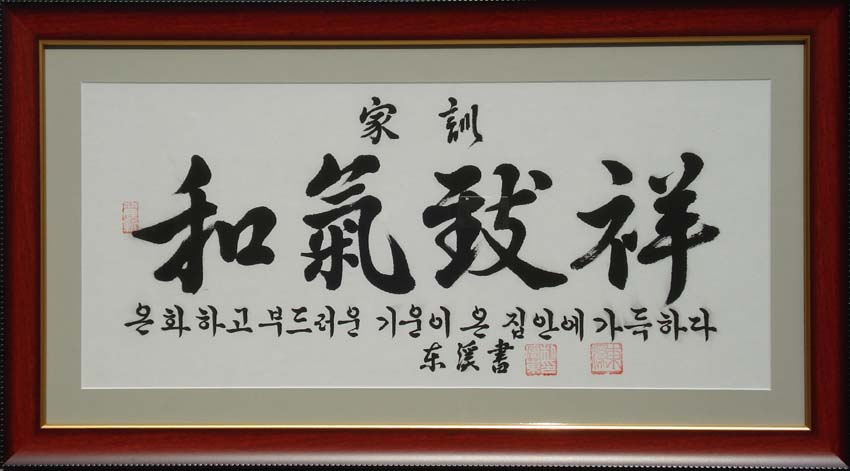 家訓
和氣致祥
온화하고 부드러운 기운이 온 집안에 가득하다
东溪書